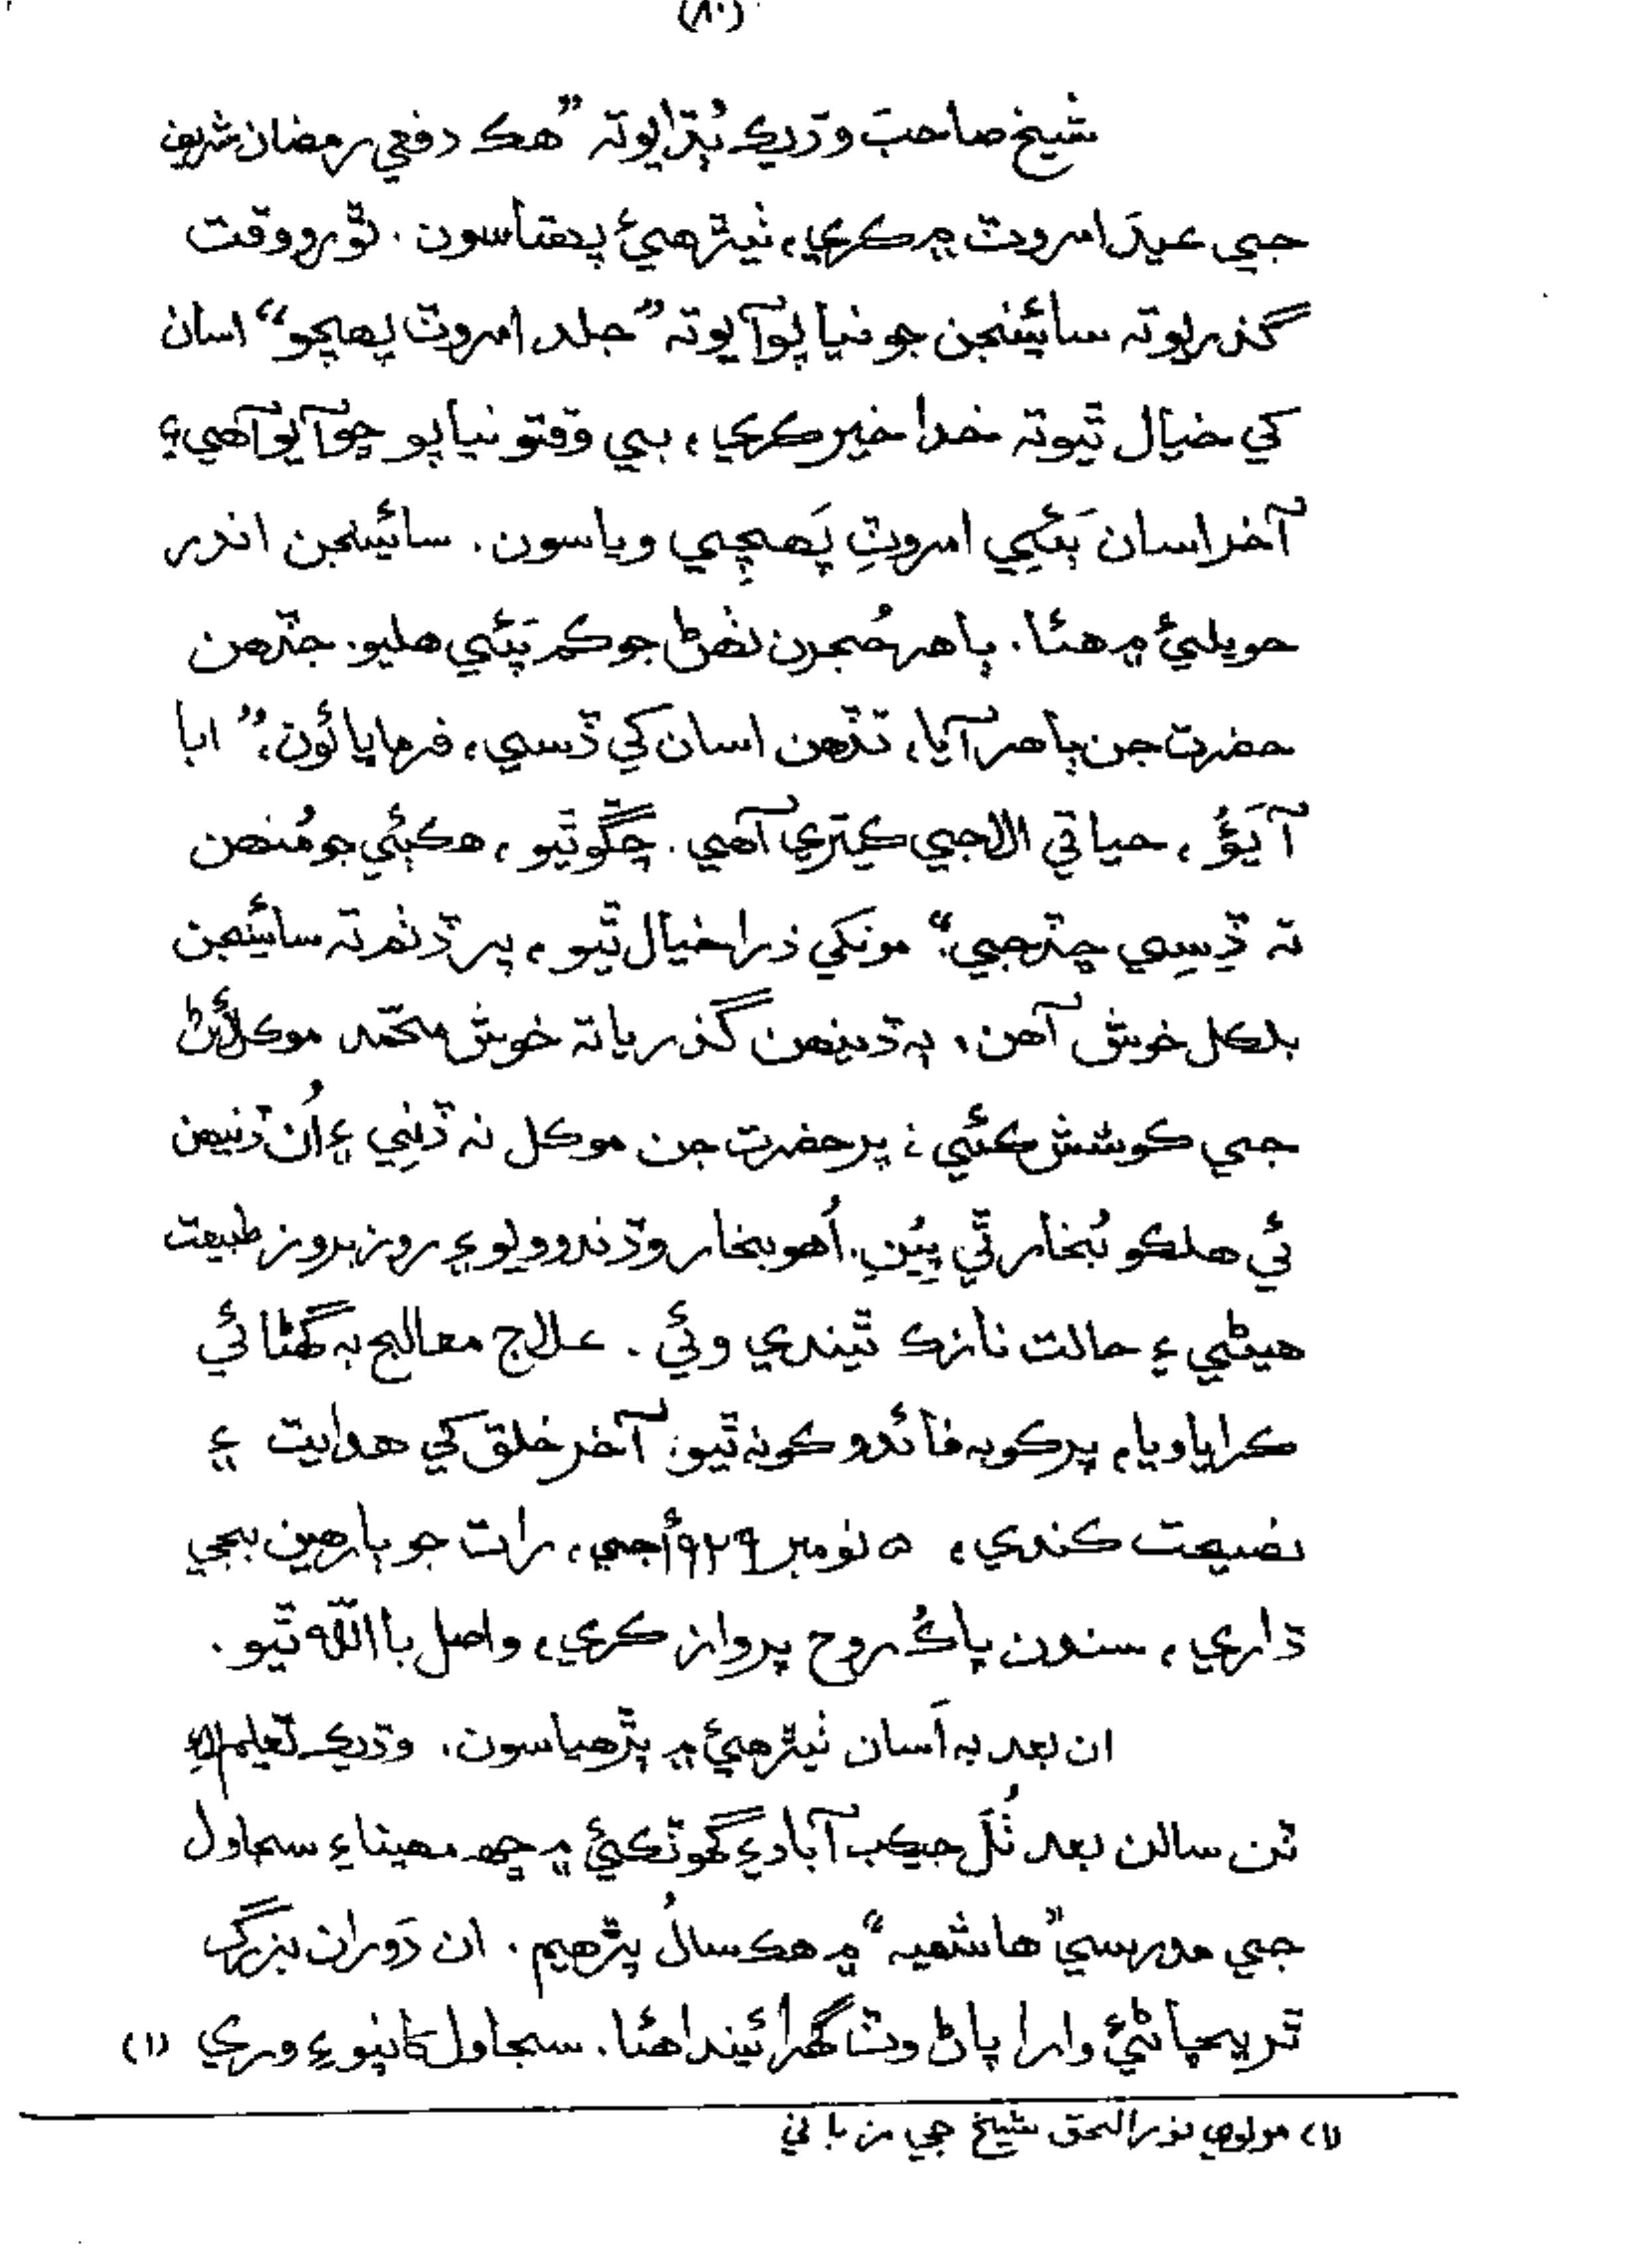 (۸۰)
شيخ صاحبَ وڌريڪ ٻُڌايو ته ”هڪ دفعي رمضان شريف
جي عيدَ امروٽ ۾ ڪري، ٺيڙهيءُ پهتاسون. ٿورو وقت
گذريو ته سائينجن جو نياپو آيو ته ”جلد امروٽ پهچو“ اسان
کي خيال ٿيو ته خدا خير ڪري، بي وقتو نياپو ڇو آيو آهي؟
آخر اسان ٻَئي امروٽِ پَهچِي وياسون. سائينجن اندر
حويليءَ ۾ هئا. ٻاهر حُجرن ٺهڻ جو ڪم پَئي هليو. جڏهن
حضرت جن ٻاهر آيا، تڏهن اسان کي ڏسي، فرمايائون، ”ابا
آيَؤُ، حياتي الاجي ڪيتري آهي. چڱو ٿيو، هڪٻئي جو مُنهن
ته ڏِسِي ڇڏجي.“ مونکي ذرا خيال ٿيو، پر ڏٺم ته سائينجن
بلڪل خوش آهن. ٻه ڏينهن گذريا ته خوش محمّد موڪلائڻ
جي ڪوشش ڪئي؛ پر حضرت جن موڪل نه ڏِني ۽ اُن ڏينهن
ئي هلڪو بُخار ٿي پِيُنِ. اُهو بخار وڌندو ويو ۽ روز بروز طبيعت
هيڻي ۽ حالت نازڪ ٿيندي وئي. علاج معالج به گهڻائي
ڪرايا ويا، پر ڪو به فائدو ڪونه ٿيو. آخر خلق کي هدايت ۽
نصيحت ڪندي، ۵ نومبر ۱۹۲۹ع جي، رات جو ٻارهين بجي
ڌاري، سندن پاڪُ روح پرواز ڪري، واصل باالله ٿيو.
ان بعد به اَسان ٺيڙهيءَ ۾ پڙهياسون. وڌريڪ تعليم لاءِ
ٽن سالن بعد ٺُلَ جيڪب آباد ۽ گهوٽڪيءَ ۾ ڇھ مهينا ۽ سجاول
جي مدرسي ”هاشميه“ ۾ هڪ سالُ پڙهيم. ان دَوران بزرگ
ٿريچاڻيءَ وارا پاڻ وٽ گهرائيندا هئا. سجاول کانپوءِ وري (۱)
(۱) مولوي نذرالحق شيخ جي زباني